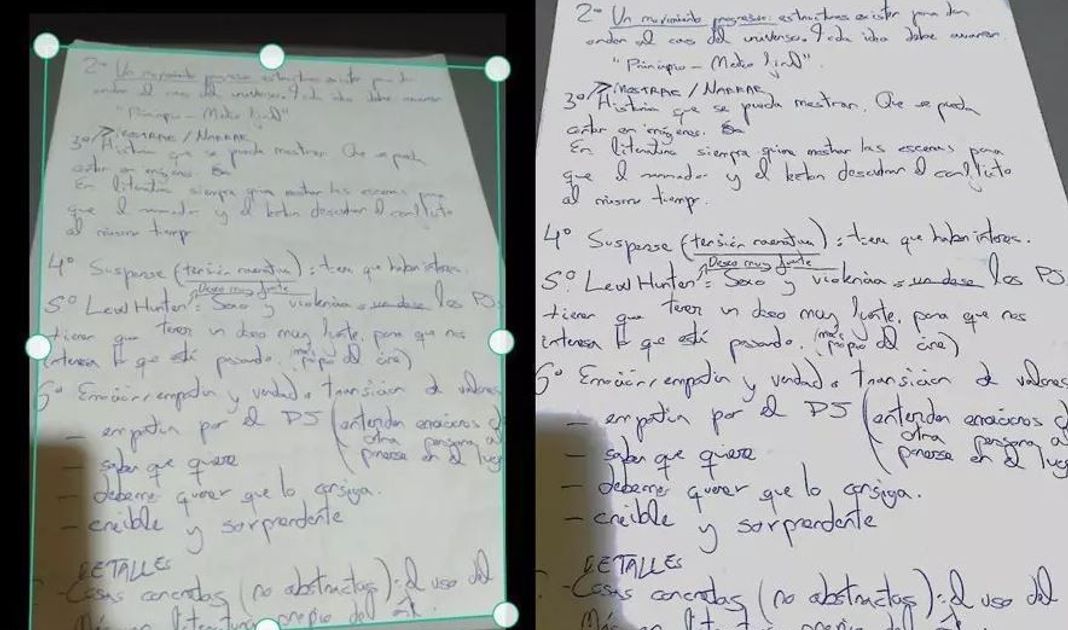 2º Un movimiento progresivo: estructuras existen para dar
orden al caos del universo. Y cada idea debe avanzar.
"Principio - Medio Final".
3º MOSTRAR / NARRAR
Historia que se pueda mostrar. Que se pueda
contar en imágenes. En
En literatura siempre quiere mostrar las escenas para
que el narrador y el lector descubran el conflicto
al mismo tiempo.
4º Suspense (tensión narrativa): tiene que haber interés.
Deseo muy fuerte
5º Lew Hunter: Sexo y violencia, un deseo los PJ
tienen que tener un deseo muy fuerte, para que nos
interesa lo que está pasando. (más propio del cine)
6º Emoción, empatía y verdad. transición de valores
- empatía por el PJ (entender emociones
otra persona
ponerse en el lug
- saber que quiere
- debemos querer que lo consiga.
- creíble y sorprendente
DETALLES
- Cosas concretas (no abstractas): el uso del